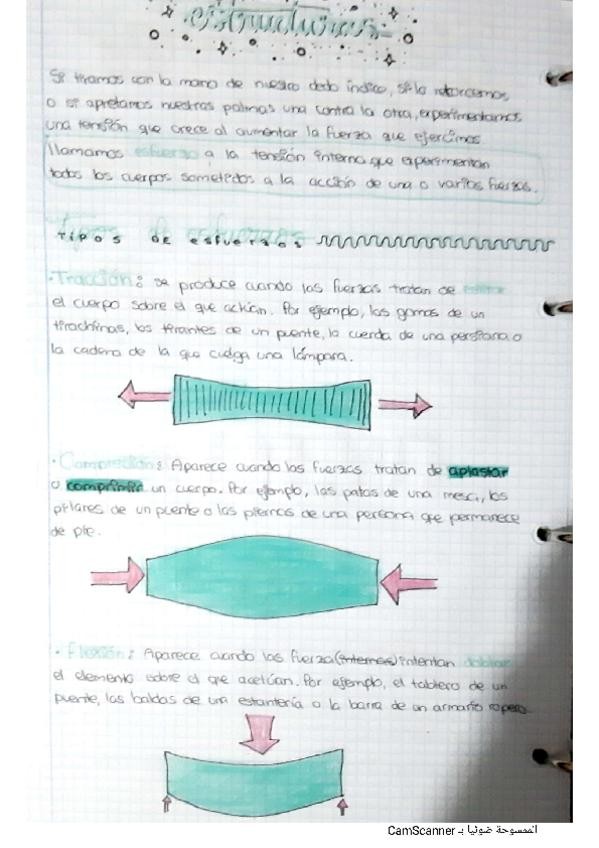 estructuras
Si tiramos con la mano de nuestro dedo índice, si lo retorcemos
o si apretamos nuestras palmas una contra la otra, experimentamos
una tensión que crece al aumentar la fuerza que ejercimos
llamamos esfuerzo a la tensión interna que experimentan
todos los cuerpos sometidos a la acción de una o varias fuerzas.
tipos de esfuerzos
·Tracción: se produce cuando las fuerzas tratan de estirar
el cuerpo sobre el que actúan. Por ejemplo, las gomas de un
tirachinas, los tirantes de un puente, la cuerda de una persiana o
la cadena de la que cuelga una lámpara.
·Compresión: Aparece cuando las fuerzas tratan de aplastar
o comprimir un cuerpo. Por ejemplo, las patas de una mesa, los
pilares de un puente o las piernas de una persona que permanece
de pie.
· Flexión: Aparece cuando las fuerza(internas) intentan doblar
el elemento sobre el que actúan. Por ejemplo, el tablero de un
puente, las baldas de una estantería o la barra de un armario ropero.
الممسوحة ضوئيا بـ CamScanner